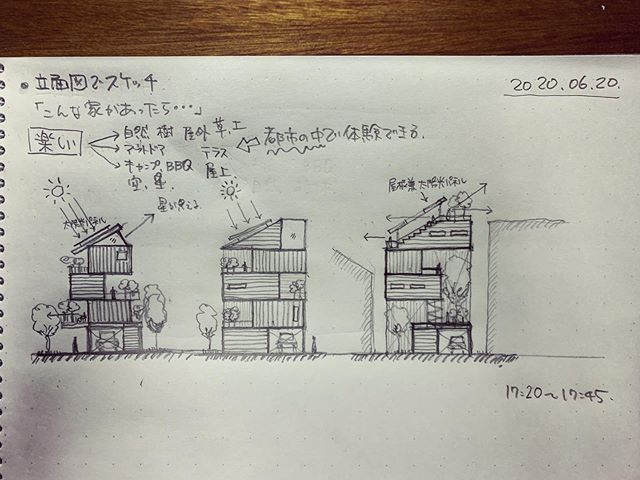 立面図でスケッチ
2020.06.20.
「こんな家があったら・・・」
楽しい
自然 樹 屋外 草、土
アウトドア テラス
都市の中で体験できる.
キャンプ BBQ 屋上
空、星.
太陽光パネル
星が見える
屋根兼太陽光パネル
17:20〜17:45.